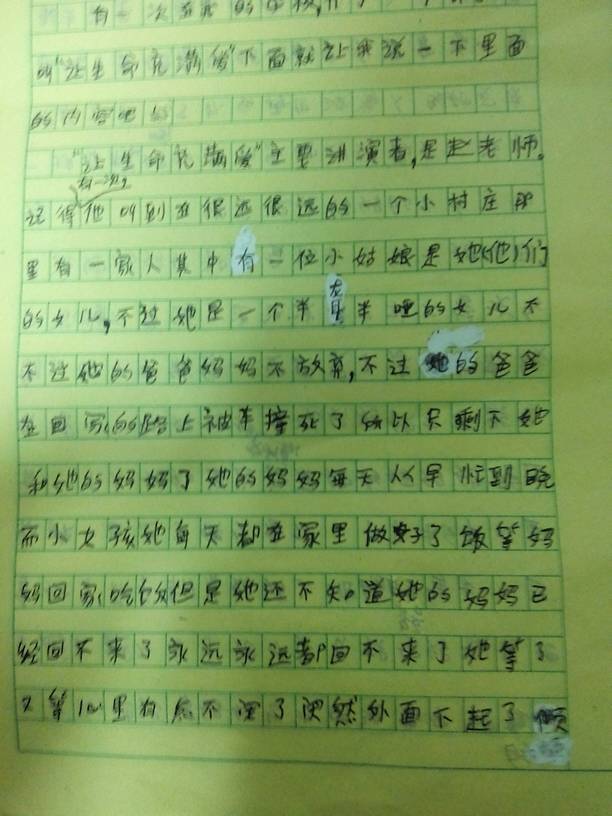 有一次在我的学校,
叫“让生命充满爱”下面就让我说一下里面
的内容吧
“让生命充满爱”主要讲演者,是赵老师。
有一次,
记得他叫到在很远很远的一个小村庄那
里有一家人其中有一位小姑娘是她(他)们
的女儿,不过她是一个半聋半哑的女儿不
不过她的爸爸妈妈不放弃,不过她的爸爸
在回家的路上被车撞死了所以只剩下她
和她的妈妈了她的妈妈每天从早忙到晚
而小女孩她每天却在家里做好了饭等妈
妈回家吃饭但是她还不知道她的妈妈已
经回不来了永远永远都回不来了她等了
又等心里有点不深了突然外面下起了倾